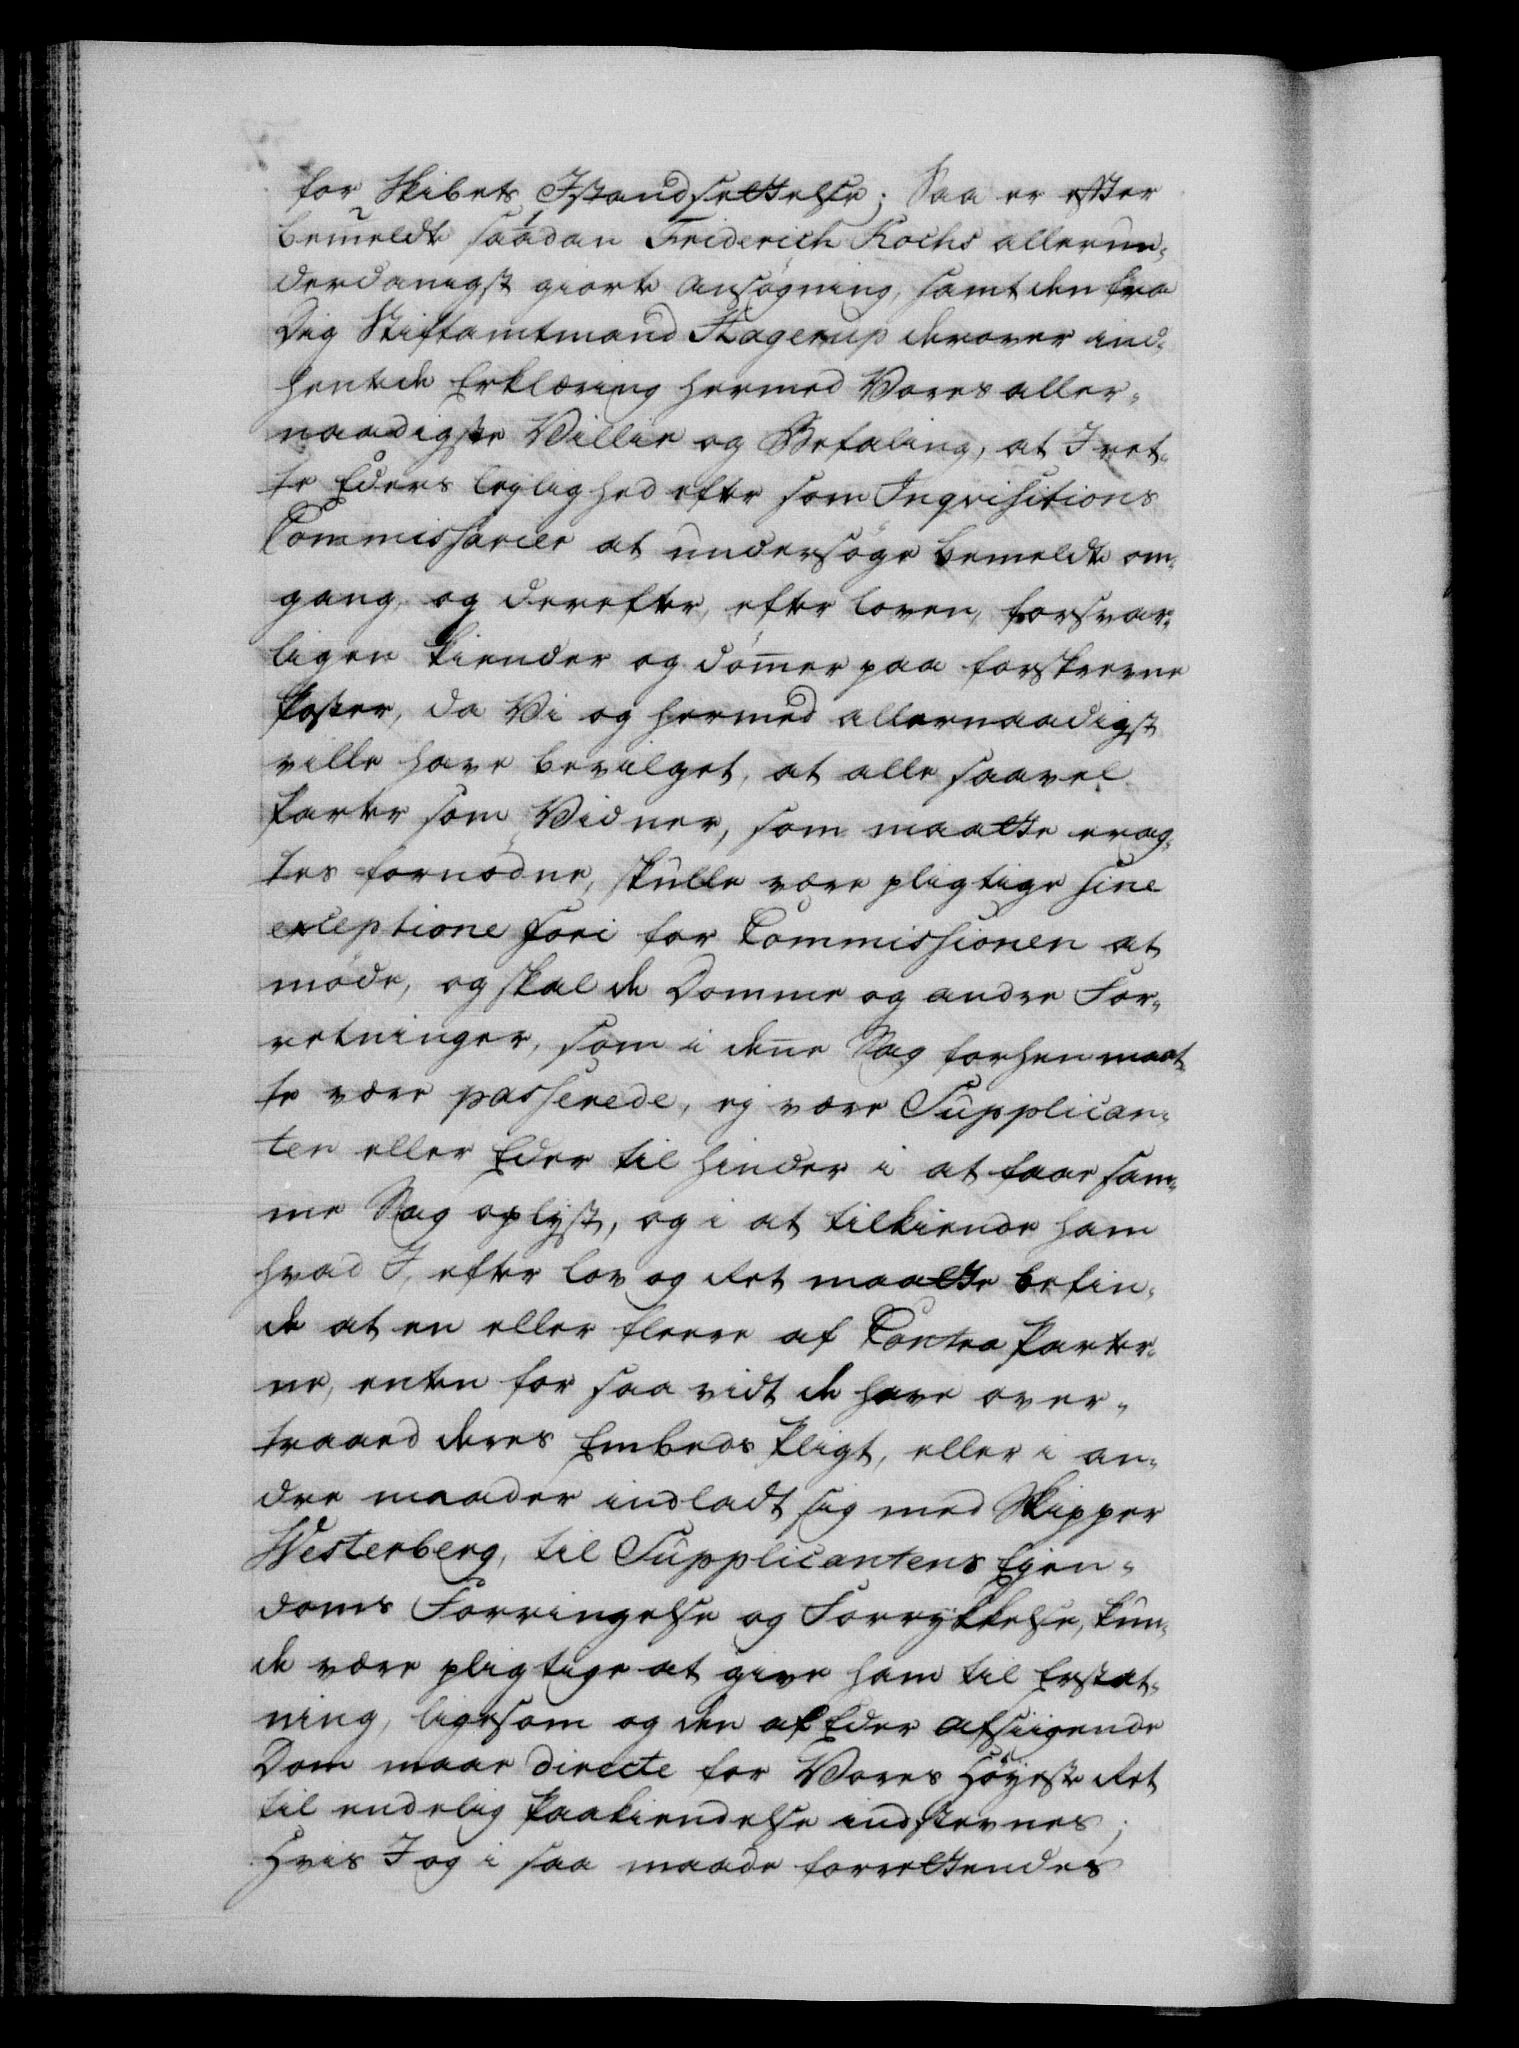 for Skibets Istandsettelse; Saa er efter
bemeldte saadan Friderich Kochs allerun-
derdanigst giorte Ansøgning, samt den fra
Dig Stiftamtmand Hagerup derover ind-
hentede Erklæring hermed Vores aller-
naadigste Villie og Befaling, at I ret-
te Eders leylighed efter som Inqvisitions
Commissarier at undersøge bemeldte om-
gang, og derefter, efter loven, forsvar-
ligen kiender og dømer paa forskrevne
Poster, da Vi og hermed allernaadigst
ville have bevilget, at alle saavel
Parter som Vidner, som maatte erag-
tes fornødne, skulle være pligtige sine
exceptione fori for Commissionen at
møde, og skal de Domme og andre For-
retninger, som i dene Sag forhen maat-
te være passerede, ej være Supplican-
ten eller Eder til hinder i at faae sam-
me Sag oplyst, og i at tilkiende ham
hvad I, efter lov og Ret maatte befin-
de at en eller fleere af Contra Parter-
ne, enten for saa vidt de have over-
traad deres Embeds Pligt, eller i an-
dre maader indladt sig med Skipper
Westerberg, til Supplicantens Ejen-
doms Forringelse og Forrykkelse, kun-
de være pligtige at give ham til Erstat-
ning, ligesom og den af Eder afsiigende
Dom maae directe for Vores Høyeste Ret
til endelig Paakiendelse indstevnes;
Hvis I og i saa maade forrettendes